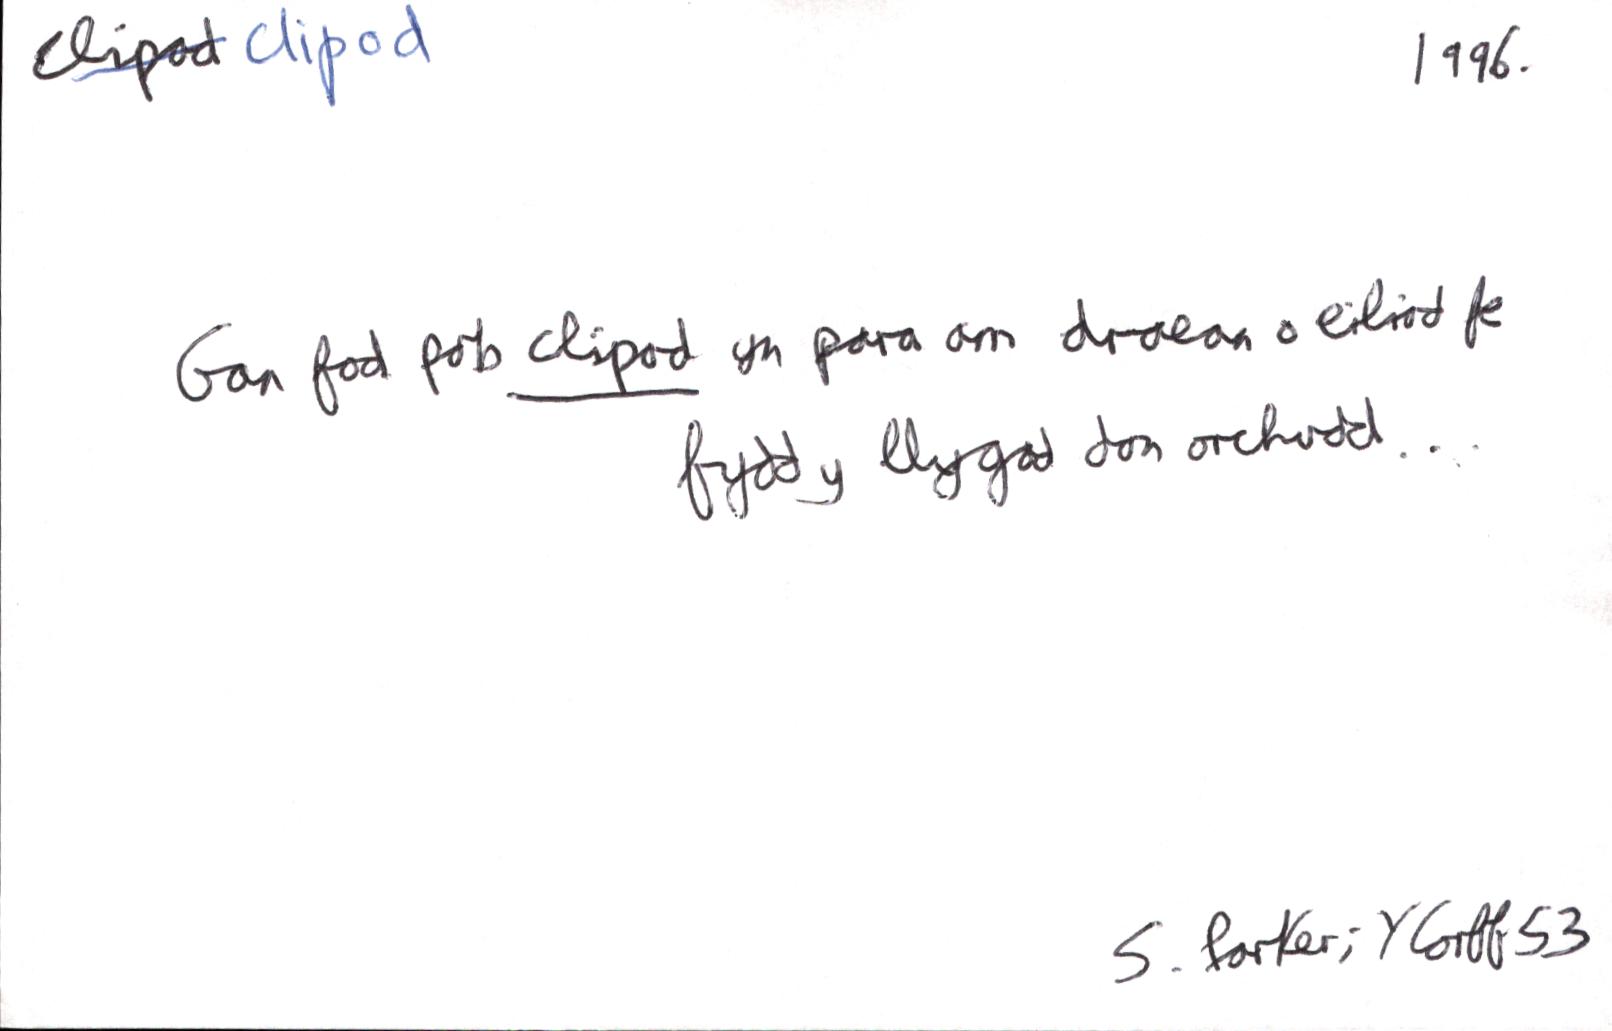 clipad clipod 1996.
Gan fod pob clipod yn para am draean o eiliad fe
fydd y llygad dan orchudd....
S. Parker; Y Corff 53